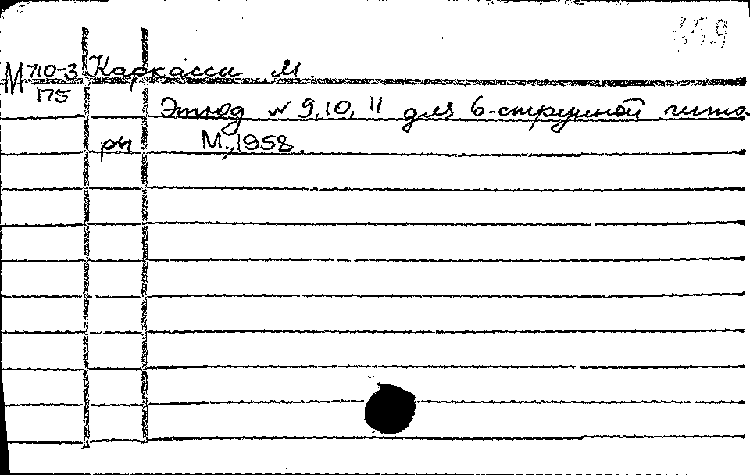 359
М 710-3 Каркасси М
175
Этюд № 9, 10, 11 для 6-струнной гита
рн М., 1958.